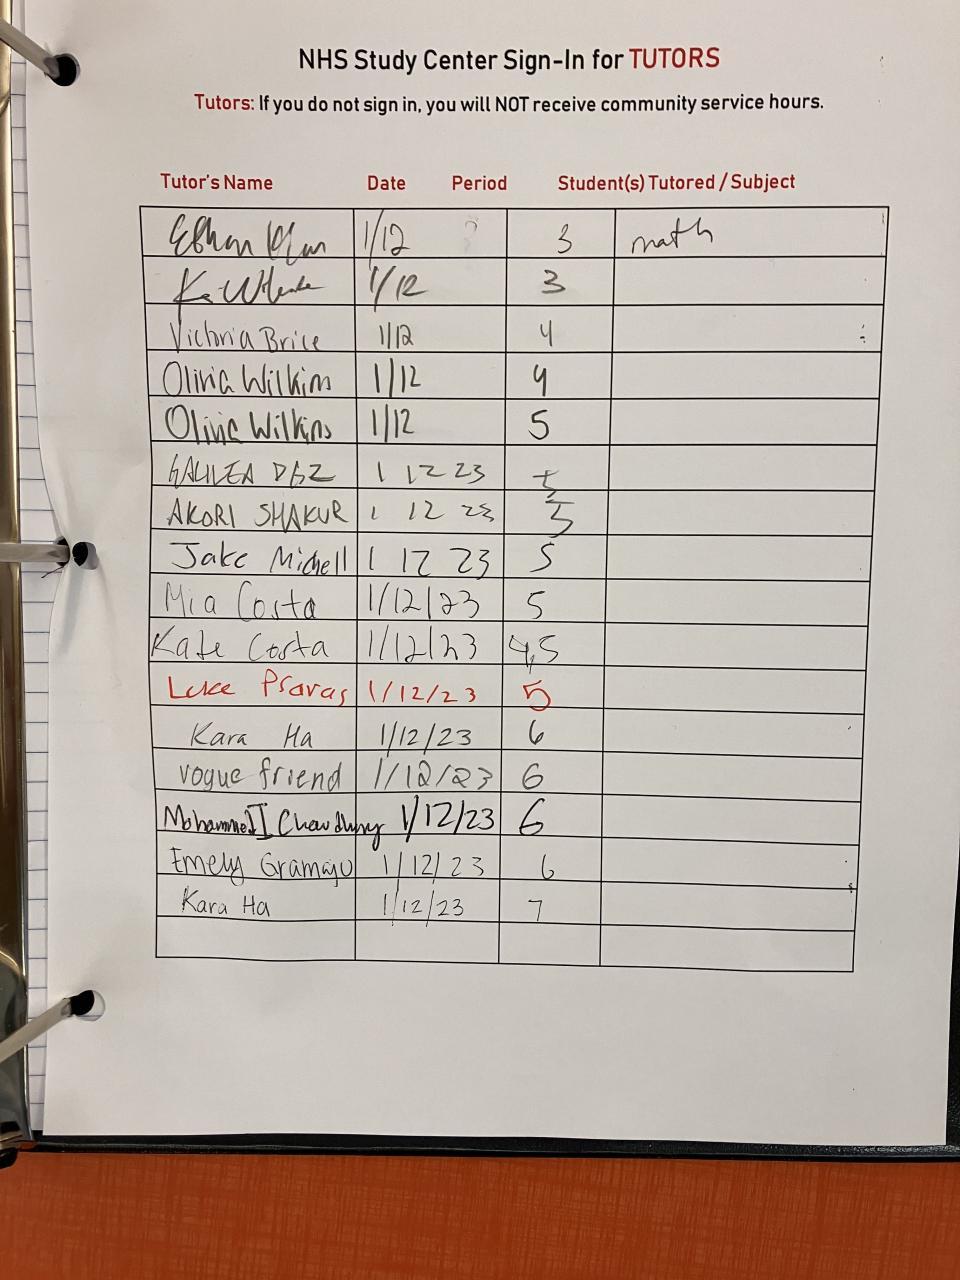 NHS Study Center Sign-In for TUTORS
Tutors: If you do not sign in, you will NOT receive community service hours.
Tutor's Name Date Period Student(s) Tutored / Subject
Ethan 1/12 3 math
1/12 3
Victoria Brice 1/12 4
Olivia Wilkins 1/12 4
Olivia Wilkins 1/12 5
GALILEA 1 12 23 5
AKORI SHAKUR 1 12 23 5
Jake Michell 1 12 23 5
Mia Costa 1/12/23 5
Kate Costa 1/12/23 4,5
Luke Psaras 1/12/23 5
Kara Ha 1/12/23 6
vogue friend 1/12/23 6
Mohammed Chowdhury 1/12/23 6
Emely Gramajo 1/12/23 6
Kara Ha 1/12/23 7